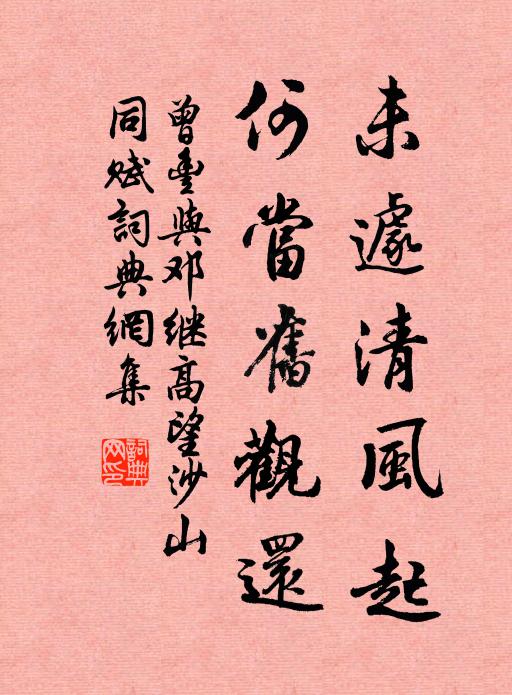 未遽清風起
何當舊觀還
曾豐與邓继高望沙山
同赋詞典網集
詞典網印